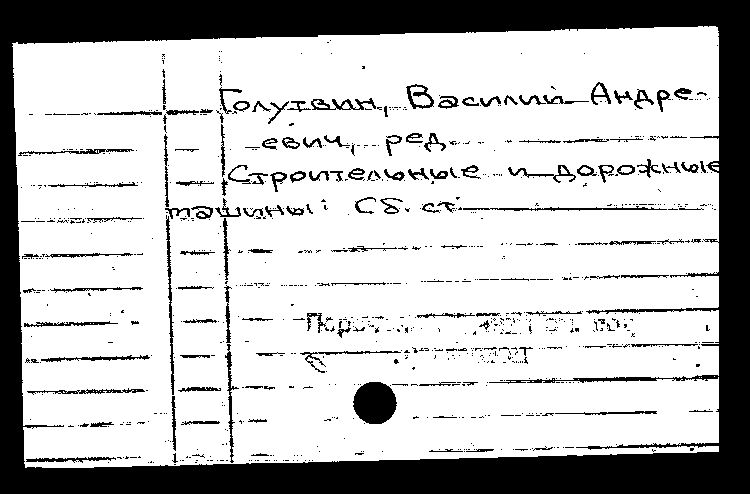 Голутвин, Василий Андре-
евич, ред.
Строительные и дорожные
машины: Сб. ст.
см. под